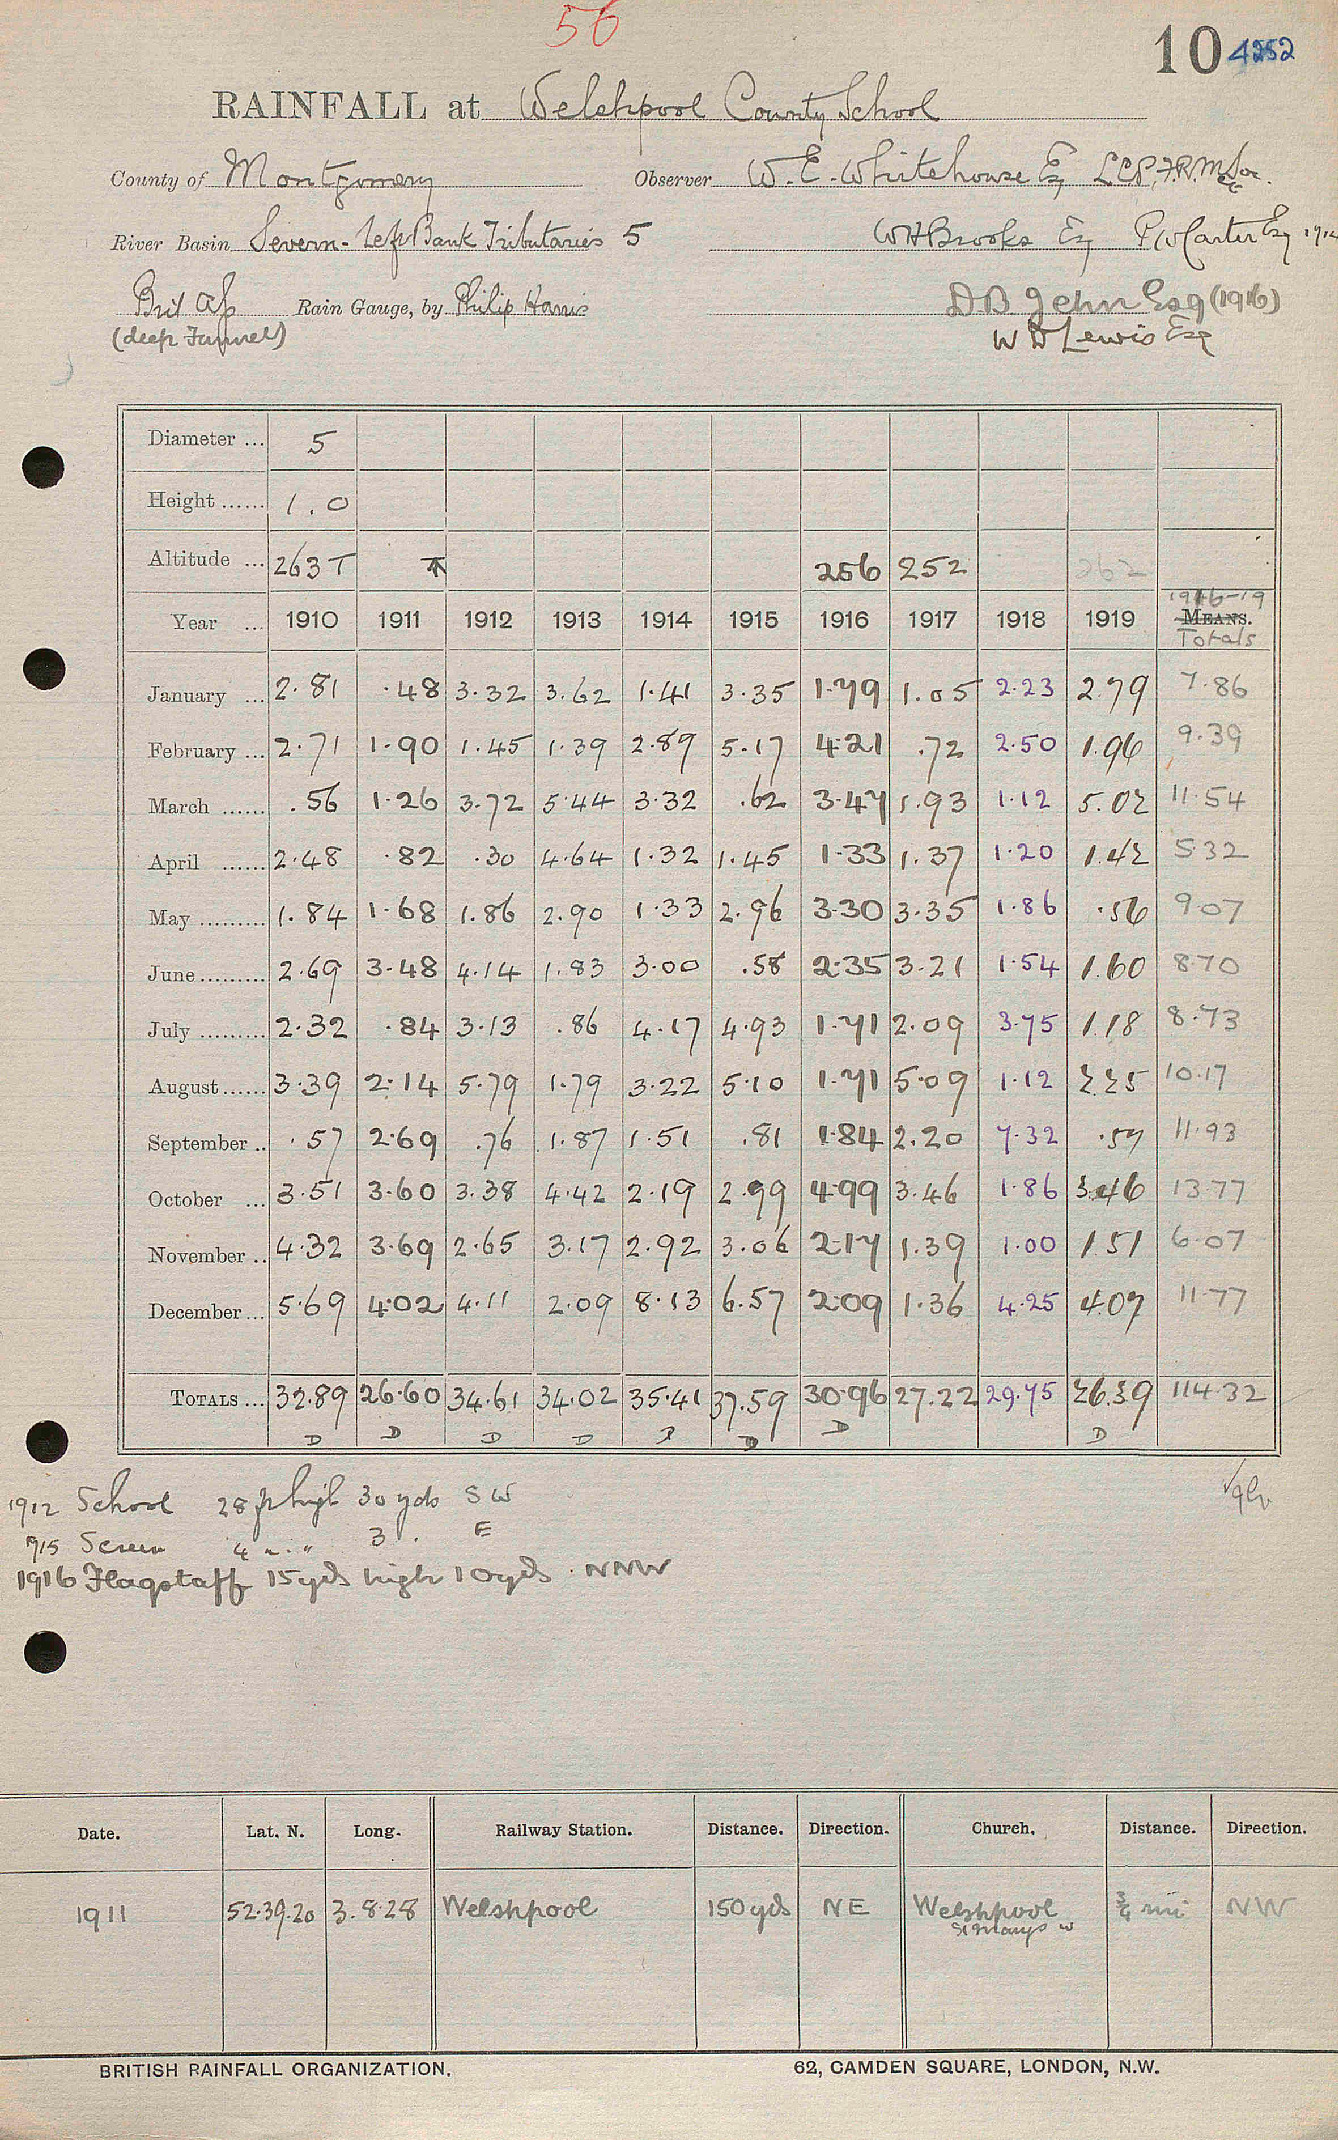 56
10 4252
RAINFALL at Welshpool County School
County of Montgomery Observer W. E. Whitehouse Esq L.C.P., F.R.Met.Soc.
River Basin Severn - Left Bank Tributaries 5 W H Brooks Esq P W Carter Esq 1914
Brit Ap Rain Gauge, by Philip Harris D B John Esq (1916)
(deep Funnel) W D Lewis Esq
Diameter ... 5
Height ...... 1.0
Altitude ... 263 T 256 252 262
1916-19
Year ... 1910 1911 1912 1913 1914 1915 1916 1917 1918 1919 MEANS.
Totals
January ... 2.81 .48 3.32 3.62 1.41 3.35 1.79 1.05 2.23 2.79 7.86
February ... 2.71 1.90 1.45 1.39 2.89 5.17 4.21 .72 2.50 1.96 9.39
March ...... .56 1.26 3.72 5.44 3.32 .62 3.47 1.93 1.12 5.02 11.54
April ...... 2.48 .82 .30 4.64 1.32 1.45 1.33 1.37 1.20 1.42 5.32
May ......... 1.84 1.68 1.86 2.90 1.33 2.96 3.30 3.35 1.86 .56 9.07
June ......... 2.69 3.48 4.14 1.83 3.00 .58 2.35 3.21 1.54 1.60 8.70
July ......... 2.32 .84 3.13 .86 4.17 4.93 1.71 2.09 3.75 1.18 8.73
August ...... 3.39 2.14 5.79 1.79 3.22 5.10 1.71 5.09 1.12 2.25 10.17
September .. .57 2.69 .76 1.87 1.51 .81 1.84 2.20 7.32 .57 11.93
October ... 3.51 3.60 3.38 4.42 2.19 2.99 4.99 3.46 1.86 3.46 13.77
November .. 4.32 3.69 2.65 3.17 2.92 3.06 2.17 1.39 1.00 1.51 6.07
December ... 5.69 4.02 4.11 2.09 8.13 6.57 2.09 1.36 4.25 4.07 11.77
TOTALS ... 32.89 26.60 34.61 34.02 35.41 37.59 30.96 27.22 29.75 26.39 114.32
D D D D D D D D
1912 School 28 ft high 30 yds S W
1915 Screen 4 " " 3 " E
1916 Flagstaff 15 yds high 10 yds . NNW
Date. Lat. N. Long. Railway Station. Distance. Direction. Church. Distance. Direction.
1911 52.39.20 3.8.28 Welshpool 150 yds NE Welshpool ¾ mi NW
St Marys
BRITISH RAINFALL ORGANIZATION. 62, CAMDEN SQUARE, LONDON, N.W.